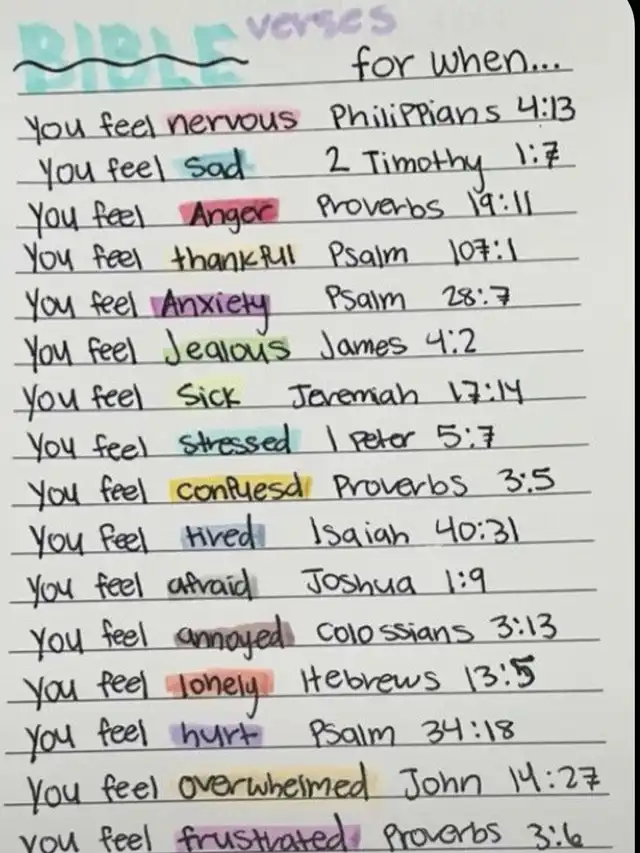 BIBLE verses
for when...
You feel nervous Philippians 4:13
You feel sad 2 Timothy 1:7
You feel Anger Proverbs 19:11
You feel thankful Psalm 107:1
You feel Anxiety Psalm 28:7
You feel Jealous James 4:2
You feel Sick Jeremiah 17:14
You feel stressed 1 Peter 5:7
You feel confuesd Proverbs 3:5
You feel tired Isaiah 40:31
You feel afraid Joshua 1:9
You feel annoyed Colossians 3:13
You feel lonely Hebrews 13:5
You feel hurt Psalm 34:18
You feel overwhelmed John 14:27
You feel frustrated Proverbs 3:6